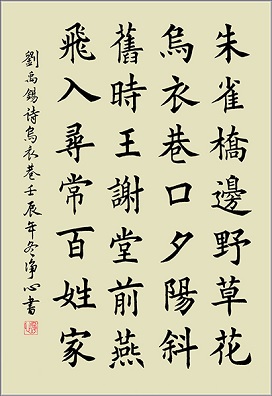 朱雀橋邊野草花
烏衣巷口夕陽斜
舊時王謝堂前燕
飛入尋常百姓家
劉禹錫詩烏衣巷壬辰年冬净心書